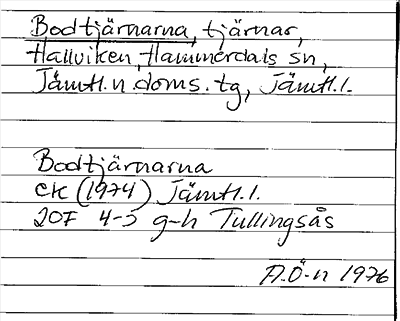 Bodtjärnarna, tjärnar,
Hallviken, Hammerdals sn,
Jämtl. n. doms. tg, Jämtl. l.
Bodtjärnarna
ek (1974) Jämtl. l.
20F 4-5 g-h Tullingsås
A.Ö-n 1976